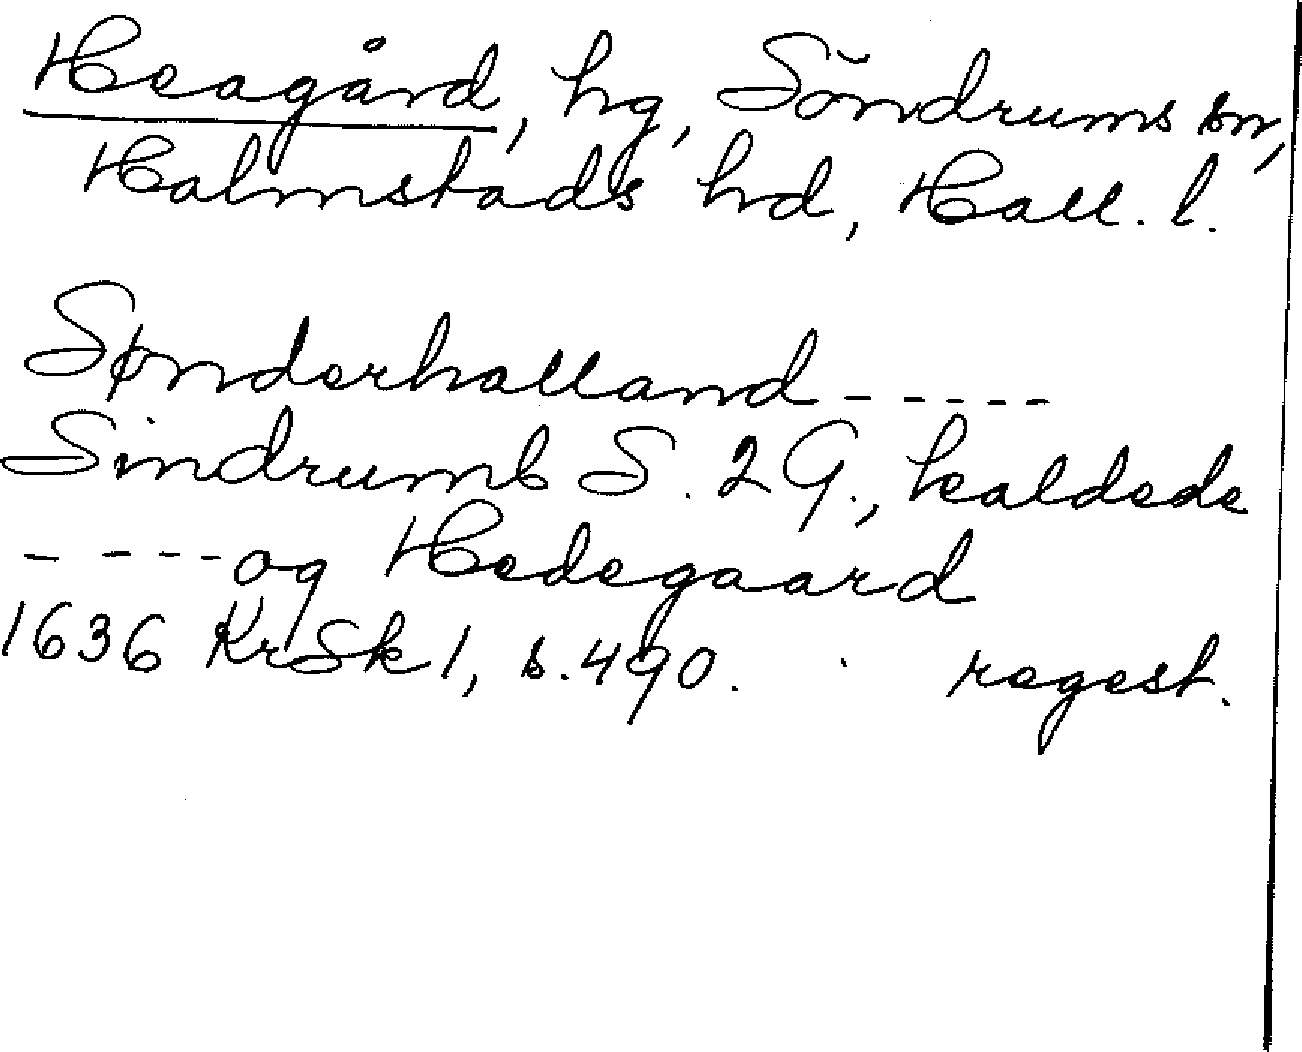 Heagård, hg, Söndrums sn,
Halmstads hd, Hall. l.
Sønderhalland -----
Sindrums S. 2 G., kaldede
- ---- og Hedegaard
1636 KrSk 1, s. 490. regest.